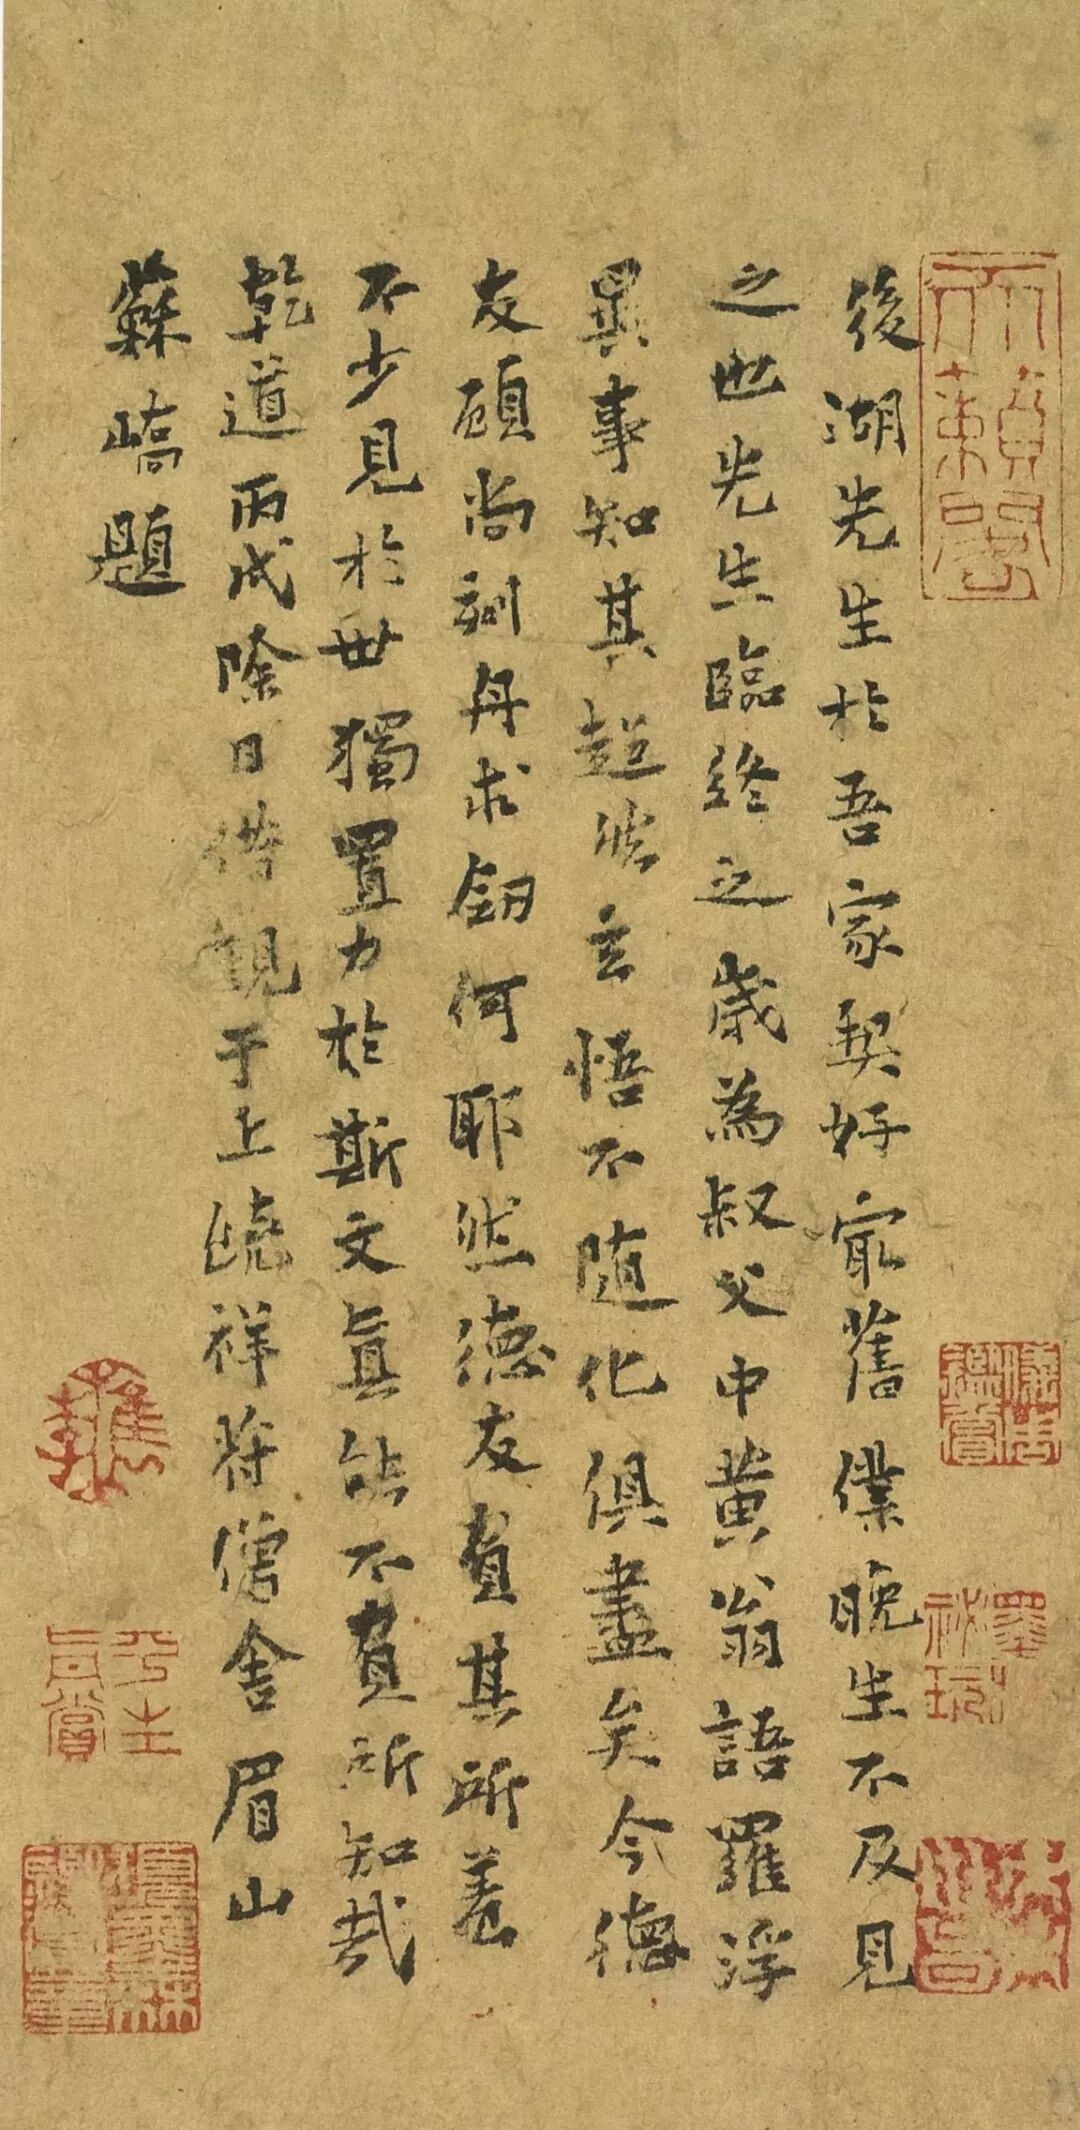 後湖先生於吾家契好最舊僕晚生不及見
之也先生臨終之歲為叔父中黃翁語羅浮
異事知其超然玄悟不随化俱盡矣今德
友顧尚訓丹求劒何耶然德友賁其所養
不少見於世獨置力於斯文真能不負所知哉
乾道丙戌除日借觀于上饒祥符僧舍眉山
蘇嶠題
天籟閣
儀周鑑賞
平生真賞